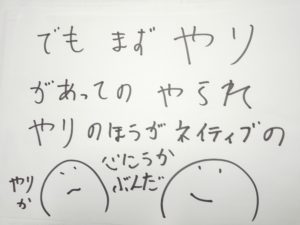 でも まず やり
があっての やられ
やりのほうがネイティブの
心にうか
ぶんだ
やり
か